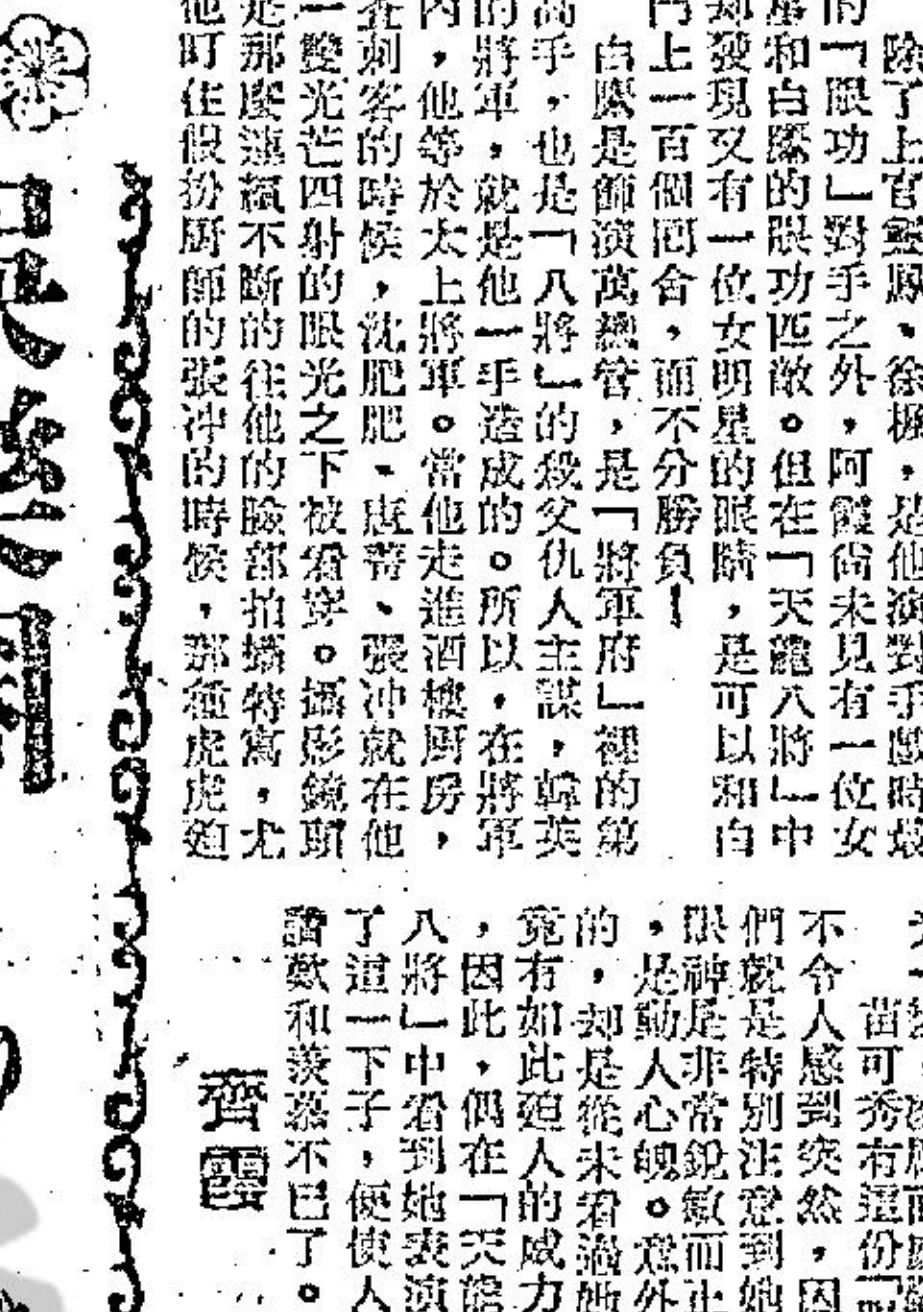 除了上官靈鳳、徐楓,是他演對手戲時最
的「眼功」對手之外,阿霞尚未見有一位女
星和白鷹的眼功匹敵。但在「天龍八將」中
却發現又有一位女明星的眼睛,是可以和白
鬥上一百個回合,而不分勝負!
白鷹是飾演萬總管,是「將軍府」裡的第
高手,也是「八將」的殺父仇人主謀,韓英
的將軍,就是他一手造成的。所以,在將軍
內,他等於太上將軍。當他走進酒樓厨房,
查刺客的時候,沈肥肥、唐菁、張冲就在他
一雙光芒四射的眼光之下被看穿。攝影鏡頭
是那麼連續不斷的往他的臉部拍攝特寫,尤
他盯住假扮厨師的張冲的時候,那種虎虎
苗可秀有這份「
不令人感到突然,因
們就是特別注意到她
眼神是非常銳敏而
,是動人心魄。意外
的,却是從未看過她
竟有如此廹人的威力
,因此,偶在「天龍
八將」中看到她表演
了這一下子,便使人
讚歎和羨慕不已了。
齊霞